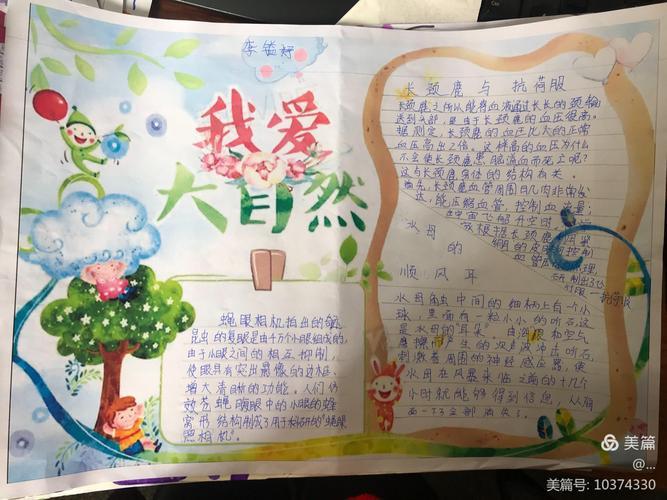 李镒妤
我爱
大自然
长颈鹿与抗荷服
长颈鹿之所以能将血液通过长长的颈输
送到头部,是由于长颈鹿的血压很高。
据测定,长颈鹿的血压比人的正常
血压高出2倍。这样高的血压为什么
不会使长颈鹿患脑溢血而死亡呢?
这与长颈鹿身体的结构有关。
首先,长颈鹿血管周围肌肉非常发
达,能压缩血管,控制血流量,
水母
的
顺风耳
水母触手中间的细柄上有一个小
球,里面有一粒小小的听石,这
是水母的“耳朵”。由海浪和空气
摩擦而产生的次声波冲击听石,
刺激着周围的神经感应器,使
水母在风暴来临之前的十几个
小时就能够得到信息,从海
面一下子全部消失了。
蝇眼照相机
昆虫的复眼是由4万个小眼组成的,
由于小眼之间的相互抑制,
使眼具有突出影像的边框,
增大清目标的功能。人们仿
效苍蝇
眼中的小眼的蜂
窝形结构制成了用于科研的“蝇眼
照相机”。
美篇
@...
美篇号: 10374330